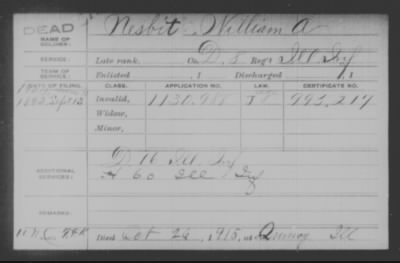 DEAD
NAME OF SOLDIER:
Nesbit William A
SERVICE:
Late rank, Co. D. 5 Reg't Ill Inf
TERM OF SERVICE:
Enlisted , 1 Discharged , 1
DATE OF FILING. CLASS. APPLICATION NO. CERTIFICATE NO.
Invalid, 1130.988 993,217
Widow,
Minor,
ADDITIONAL SERVICES:
D 76 Ill Inf
H 60 Ill Inf
REMARKS:
Died Oct 26, 1915, at Quincy Ill